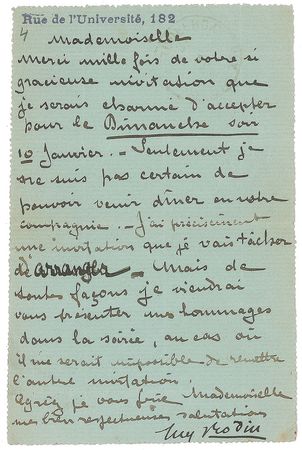 Rue de l'Université, 182
4
Mademoiselle
Merci mille fois de votre si
gracieuse invitation que
je serais charmé d'accepter
pour le Dimanche soir
10 Janvier. - Seulement je
ne suis pas certain de
pouvoir venir dîner en votre
compagnie. - J'ai précisément
une invitation que je vais tâcher
d'arranger - Mais de
toutes façons je viendrai
vous présenter mes hommages
dans la soirée, au cas où
il me serait impossible de remettre
l'autre invitation.
Agréez je vous prie Mademoiselle
mes bien respectueuses salutations
Rodin